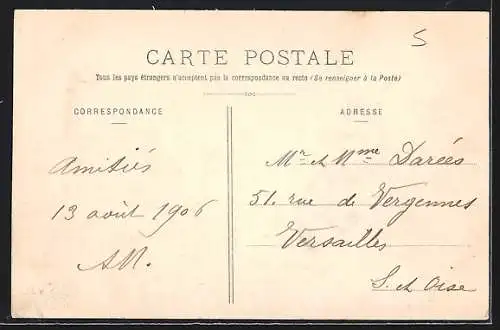 5
CARTE POSTALE
Tous les pays étrangers n'acceptent pas la correspondance au recto (Se renseigner à la Poste)
CORRESPONDANCE
ADRESSE
Amitiés
13 août 1906
Mr et Mme Darées
51. rue de Vergennes
Versailles
S. et Oise